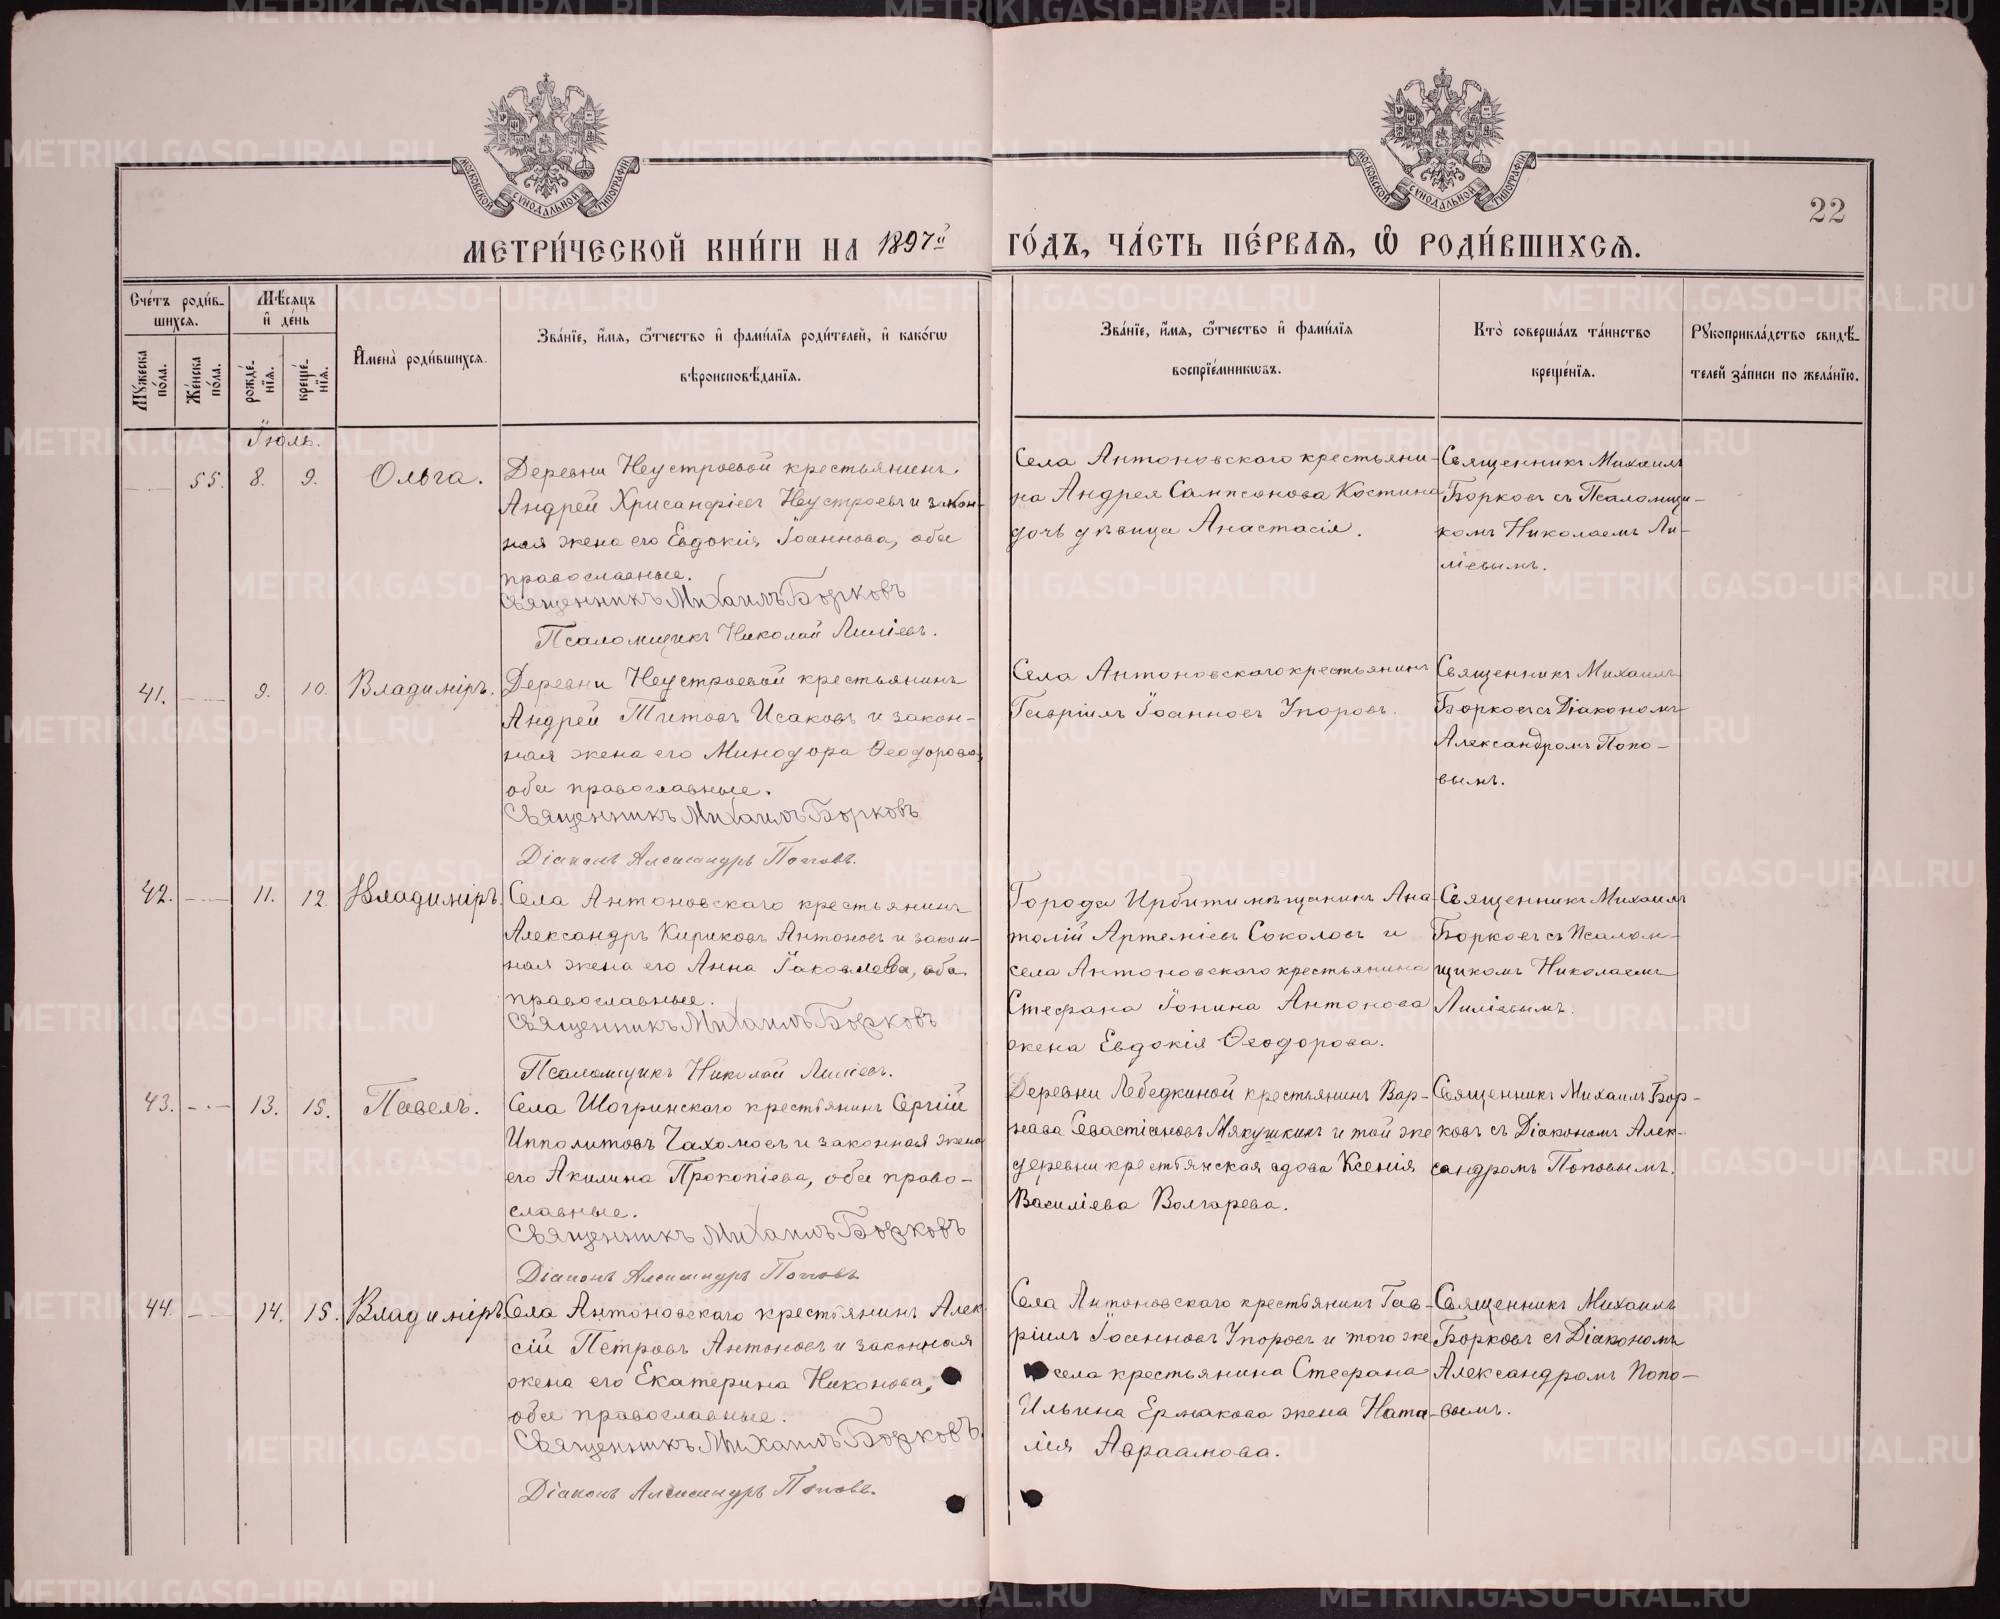 МОСКОВСКОЙ СУНОДАЛЬНОЙ ТИПОГРАФІИ
МОСКОВСКОЙ СУНОДАЛЬНОЙ ТИПОГРАФІИ
22
МЕТРИ́ЧЕСКОЙ КНИ́ГИ НА 1897й ГО́ДЪ, ЧА́СТЬ ПЕ́РВАѦ, Ѽ РОДИ́ВШИХСѦ.
Сче́тъ роди́в-
шихсѧ.
Мѣ́сѧцъ
и҆ де́нь
Мꙋ́жеска
по́ла.
Же́нска
по́ла.
рожде́-
нїѧ.
креще́-
нїѧ.
И҆мена̀ роди́вшихсѧ.
Зва́нїе, и҆́мѧ, ѻ҆́тчество и҆ фами́лїѧ роди́телей, и҆ како́гѡ
вѣроисповѣ́данїѧ.
Зва́нїе, и҆́мѧ, ѻ҆́тчество и҆ фами́лїѧ
воспрїе́мникѡвъ.
Кто̀ соверша́лъ та́инство
креще́нїѧ.
Рꙋкоприкла́дство свидѣ́-
телей за́писи по жела́нїю.
Іюль.
55. 8. 9. Ольга.
Деревни Неустроевой крестьянинъ
Андрей Хрисанфіевъ Неустроевъ и закон-
ная жена его Евдокія Іоаннова, оба
православные.
Священникъ Михаилъ Борковъ
Псаломщикъ Николай Лиліевъ.
Села Антоновскаго крестьяни-
на Андрея Сампсонова Костина
дочь дѣвица Анастасія.
Священникъ Михаилъ
Борковъ съ Псаломщи-
комъ Николаемъ Ли-
ліевымъ.
41. 9. 10. Владиміръ.
Деревни Неустроевой крестьянинъ
Андрей Титовъ Исаковъ и закон-
ная жена его Минодора Ѳеодорова,
оба православные.
Священникъ Михаилъ Борковъ
Діаконъ Александръ Поповъ.
Села Антоновскаго крестьянинъ
Гавріилъ Іоанновъ Упоровъ.
Священникъ Михаилъ
Борковъ съ Діакономъ
Александромъ Попо-
вымъ.
42. 11. 12. Владиміръ.
Села Антоновскаго крестьянинъ
Александръ Кириковъ Антоновъ и закон-
ная жена его Анна Іаковлева, оба
православные.
Священникъ Михаилъ Борковъ
Псаломщикъ Николай Лиліевъ.
Города Ирбити мѣщанинъ Ана-
толій Артеміевъ Соколовъ и
села Антоновскаго крестьянина
Стефана Іонина Антонова
жена Евдокія Ѳеодорова.
Священникъ Михаилъ
Борковъ съ Псалом-
щикомъ Николаемъ
Лиліевымъ.
43. 13. 15. Павелъ.
Села Шогринскаго крестьянинъ Сергій
Ипполитовъ Чахомовъ и законная жена
его Акилина Прокопіева, оба право-
славные.
Священникъ Михаилъ Борковъ
Діаконъ Александръ Поповъ
Деревни Лебедкиной крестьянинъ Вар-
нава Севастіановъ Мякушкинъ и той же
деревни крестьянская вдова Ксенія
Василіева Волгарева.
Священникъ Михаилъ Бор-
ковъ съ Діакономъ Алек-
сандромъ Поповымъ.
44. 14. 15. Владиміръ
Села Антоновскаго крестьянинъ Алек
сій Петровъ Антоновъ и законная
жена его Екатерина Никонова,
оба православные.
Священникъ Михаилъ Борковъ
Діаконъ Александръ Поповъ.
Села Антоновскаго крестьянинъ Гав-
ріилъ Іоанновъ Упоровъ и того же
села крестьянина Стефана
Ильина Ермакова жена Ната-
лія Авраамова.
Священникъ Михаилъ
Борковъ съ Діакономъ
Александромъ Попо-
вымъ.
METRIKI.GASO-URAL.RU